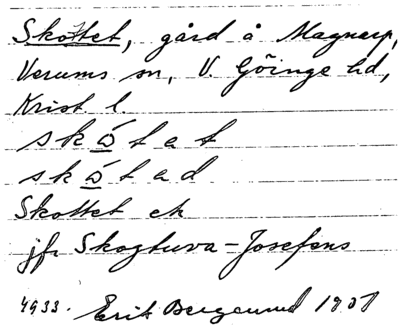 Skottet, gård å Magnarp,
Verums sn, V. Göinge hd,
Krist l.
skɷ́tat
skɷ́tad
Skottet ek
jfr Skogtuva-Josefens
4933. Erik Bergenrud 1937